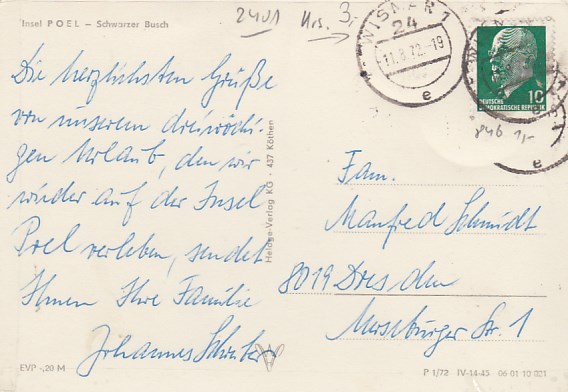 Insel POEL – Schwarzer Busch
2401 Mrs. 3,-
WISMAR 1
24
11.8.72.-19
e
DEUTSCHE 10
DEMOKRATISCHE REPUBLIK
846 1,-
e
Die herzlichsten Grüße
von unserem dreiwöchi-
gen Urlaub, den wir
wieder auf der Insel
Poel verleben, sendet
Ihnen Ihre Familie
Johannes
Heldge-Verlag KG · 437 Köthen
Fam.
Manfred Schmidt
8019 Dresden
Merseburger Str. 1
EVP -,20 M
P 1/72 IV-14-45 06 01 10 021